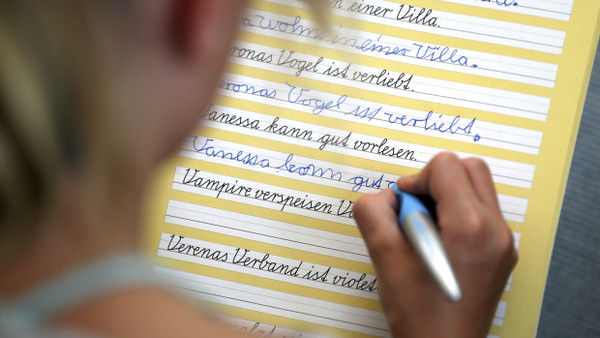 einer Villa.
wohnt in einer Villa.
ronas Vogel ist verliebt.
ronas Vogel ist verliebt.
Vanessa kann gut vorlesen.
Vanessa kann gut
Vampire verspeisen
Verenas Verband ist violet